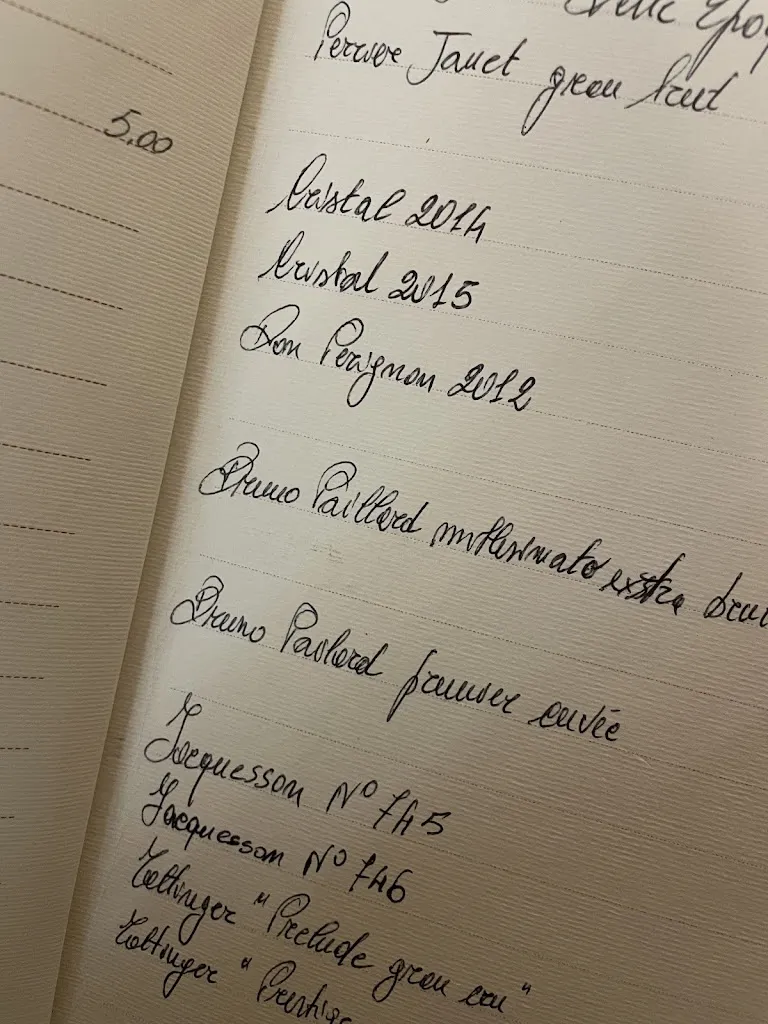 Belle Epo
Perrier Jouet gran brut
5,00
Cristal 2014
Cristal 2015
Don Perignon 2012
Bruno Paillard millesimato exstra bru
Bruno Pailard premier cuvée
Jacquesson N° 745
Jacquesson N° 746
Tattinger "Prelude gran cru"
Tattinger "Prestige